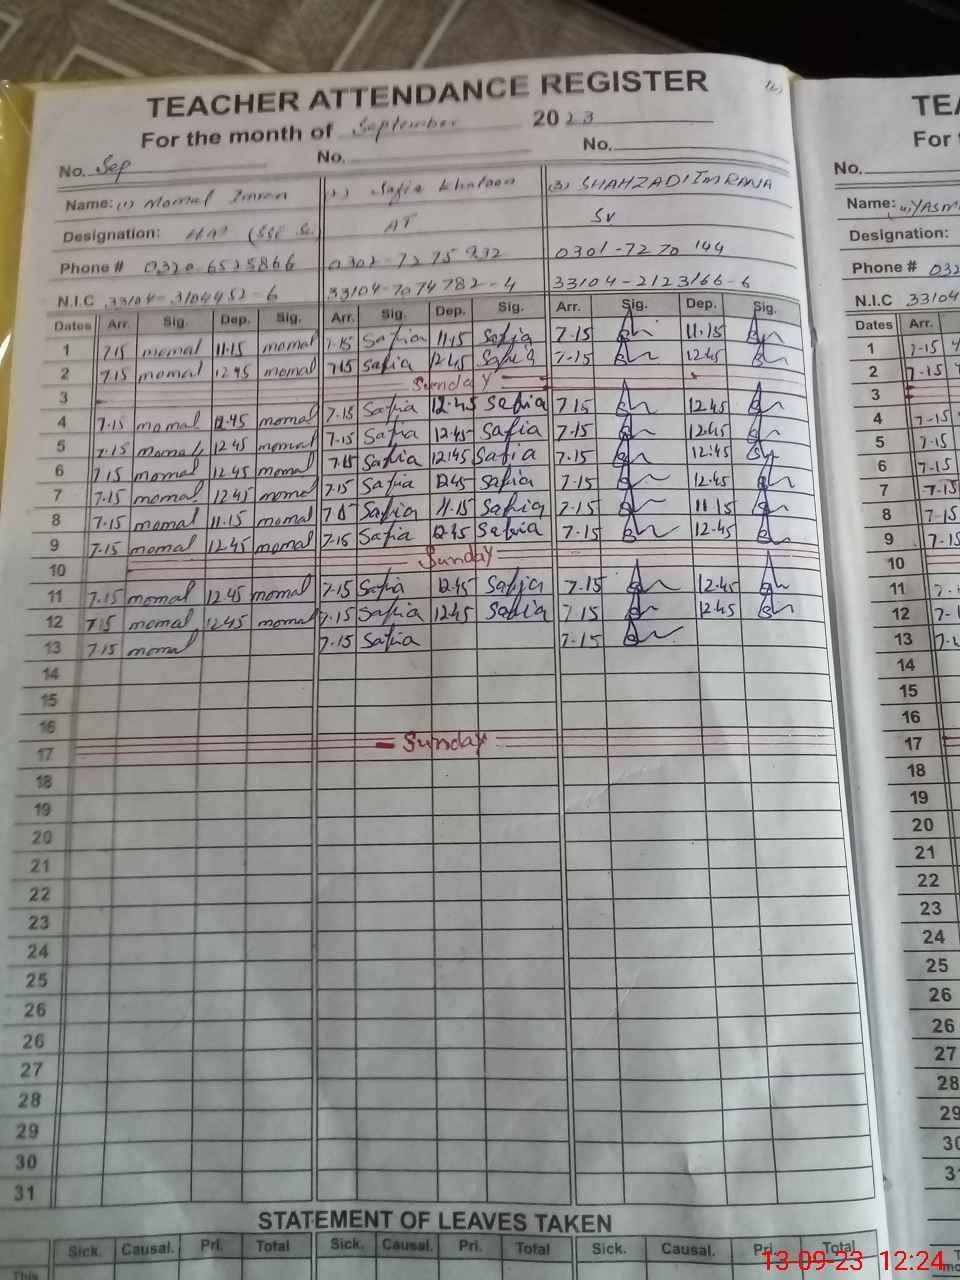 TEACHER ATTENDANCE REGISTER
For the month of September 2023
No. Sep No. No.
Name: (1) Momal Imran (2) Safia Khatoon (3) SHAHZADI IMRANA
Designation: AT SV
Phone # 0320 6525866 0302-7275932 0301-7270144
N.I.C 33104-3104452-6 33104-7074782-4 33104-2123166-6
Dates Arr. Sig. Dep. Sig. Arr. Sig. Dep. Sig. Arr. Sig. Dep. Sig.
1 7.15 momal 11.15 momal 7.15 Safia 11.15 Safia 7.15 11.15
2 7.15 momal 12.45 momal 7.15 Safia 12.45 Safia 7.15 12.45
3 Sunday
4 7.15 momal 12.45 momal 7.15 Safia 12.45 Safia 7.15 12.45
5 7.15 momal 12.45 momal 7.15 Safia 12.45 Safia 7.15 12.45
6 7.15 momal 12.45 momal 7.15 Safia 12.45 Safia 7.15 12.45
7 7.15 momal 12.45 momal 7.15 Safia 12.45 Safia 7.15 12.45
8 7.15 momal 11.15 momal 7.15 Safia 11.15 Safia 7.15 11.15
9 7.15 momal 12.45 momal 7.15 Safia 12.45 Safia 7.15 12.45
10 Sunday
11 7.15 momal 12.45 momal 7.15 Safia 12.45 Safia 7.15 12.45
12 7.15 momal 12.45 momal 7.15 Safia 12.45 Safia 7.15 12.45
13 7.15 momal 7.15 Safia 7.15
14
15
16
17 Sunday
18
19
20
21
22
23
24
25
26
26
27
28
29
30
31
STATEMENT OF LEAVES TAKEN
Sick. Causal. Pri. Total Sick. Causal. Pri. Total Sick. Causal. Pri. Total
This
TEA
For t
No.
Name: YASM
Designation:
Phone # 032
N.I.C 33104
Dates Arr.
1 7-15
2 7-15
3
4 7-15
5 7-15
6 7-15
7 7-15
8 7-15
9 7-15
10
11
12
13
14
15
16
17
18
19
20
21
22
23
24
25
26
26
27
28
29
30
31
13-09-23 12:24